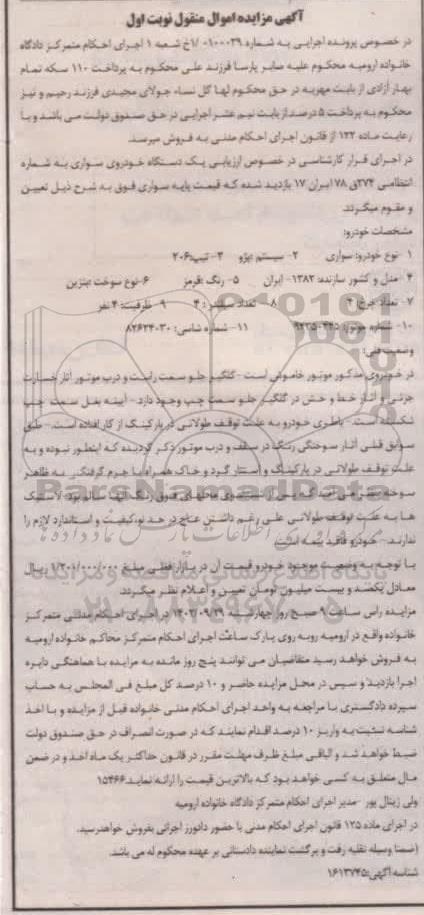 آگهی مزایده اموال منقول نوبت اول
در خصوص پرونده اجرایی به شماره ۰۱۰۰۰۳۹/اخ شعبه ۱ اجرای احکام متمرکز دادگاه
خانواده ارومیه محکوم علیه صابر پارسا فرزند علی محکوم به پرداخت ۱۱۰ سکه تمام
بهار آزادی از بابت مهریه در حق محکوم لها گل نساء جولای مجیدی فرزند رحیم و نیز
محکوم به پرداخت ۵ درصد از بابت نیم عشر اجرایی در حق صندوق دولت می باشد و با
رعایت ماده ۱۲۲ از قانون اجرای احکام مدنی به فروش میرسد.
در اجرای قرار کارشناسی در خصوص ارزیابی یک دستگاه خودروی سواری به شماره
انتظامی ۲۷۴ق ۷۸ ایران ۱۷ بازدید شده که قیمت پایه سواری فوق به شرح ذیل تعیین
و مقوم میگردد.
مشخصات خودرو:
۱- نوع خودرو: سواری ۲- سیستم: پژو ۳- تیپ:۲۰۶
۴- مدل و کشور سازنده: ۱۳۸۲- ایران ۵- رنگ :قرمز ۶-نوع سوخت :بنزین
۷- تعداد چرخ: ۴ ۸- تعداد سیلندر : ۴ ۹- ظرفیت: ۴ نفر
۱۰- شماره موتور: ۱۱- شماره شاسی: ۸۲۶۲۴۰۳۰
وضعیت فنی:
در خودروی مذکور موتور خاموش است - گلگیر جلو سمت راست و درب موتور آثار خسارت
جزئی و آثار خط و خش در گلگیر جلو سمت چپ وجود دارد - آیینه بغل سمت چپ
شکسته است - باطری خودرو به علت توقف طولانی در پارکینگ از کار افتاده است - طبق
سوابق قبلی آثار سوختگی رنگ در سقف و درب موتور ذکر گردیده که اینطور نبوده و به
علت توقف طولانی در پارکینگ و استتار گرد و خاک همراه با جرم گرفتگی به ظاهر
سوخته بنظر می آمد که پس از شستشوی محلهای فوق رنگ آنها سالم بود - لاستیک
ها به علت توقف طولانی علی رغم داشتن عاج در حد نو، کیفیت و استاندارد لازم را
ندارند - خودرو فاقد بیمه است
با توجه به وضعیت موجود خودرو قیمت آن در بازار فعلی مبلغ ۱/۲۰۰/۰۰۰/۰۰۰ ریال
معادل یکصد و بیست میلیون تومان تعیین و اعلام نظر میگردد.
مزایده راس ساعت ۹ صبح روز چهارشنبه ۱۴۰۲/۰۹/۲۹ در اجرای احکام مدنی متمرکز
خانواده واقع در ارومیه روبه روی پارک ساعت اجرای احکام متمرکز محاکم خانواده ارومیه
به فروش خواهد رسید متقاضیان می توانند پنج روز مانده به مزایده با هماهنگی دایره
اجرا بازدید و سپس در محل مزایده حاضر و ۱۰ درصد کل مبلغ فی المجلس به حساب
سپرده دادگستری با مراجعه به واحد اجرای احکام مدنی خانواده قبل از مزایده و با اخذ
شناسه نسبت به واریز ۱۰ درصد اقدام نمایند که در صورت انصراف در حق صندوق دولت
ضبط خواهد شد و الباقی مبلغ ظرف مهلت مقرر در قانون حداکثر یک ماه اخذ و در ضمن
مال متعلق به کسی خواهد بود که بالاترین قیمت را ارائه نماید.۱۵۴۶۶
ولی زینال پور -مدیر اجرای احکام متمرکز دادگاه خانواده ارومیه
در اجرای ماده ۱۲۵ قانون اجرای احکام مدنی با حضور دادورز اجرائی بفروش خواهد رسید.
(ضمنا وسیله نقلیه رفت و برگشت نماینده دادستانی بر عهده محکوم له می باشد.
شناسه آگهی:۱۶۱۳۷۴۵
ParsNamadData
پایگاه اطلاع رسانی مناقصه و مزایده